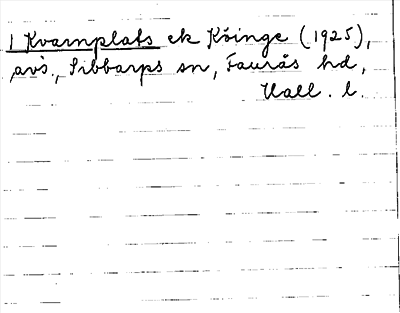 1 Kvarnplats ek Köinge (1925),
avs., Sibbarps sn, Faurås hd,
Hall. l.